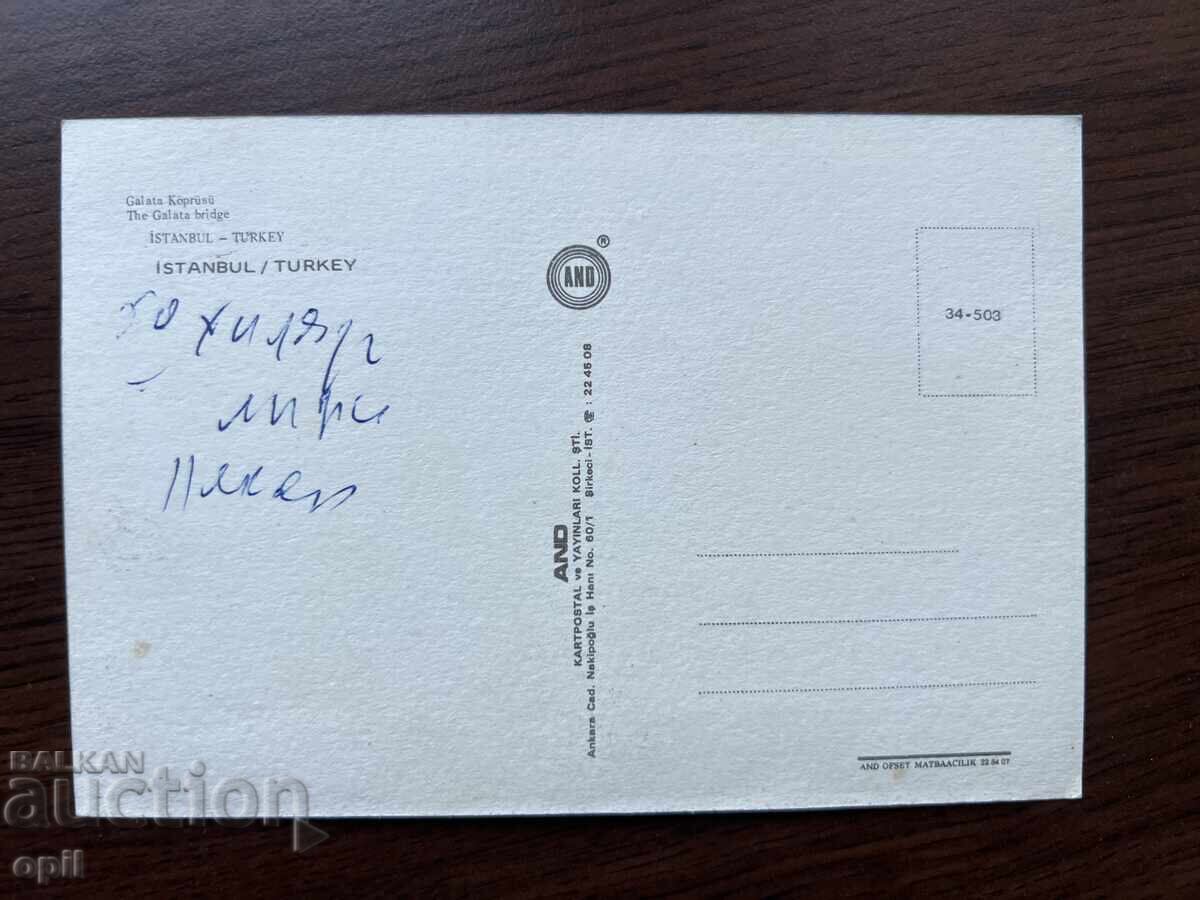 Galata Köprüsü
The Galata bridge
İSTANBUL – TURKEY
İSTANBUL / TURKEY
AND
®
34-503
AND
KARTPOSTAL ve YAYINLARI KOLL. ŞTİ.
Ankara Cad. Nakipoğlu İş Hanı No. 60/1 Sirkeci-İST. ☎ : 22 45 08
AND OFSET MATBAACILIK 22 84 07
BALKAN
auction
opil